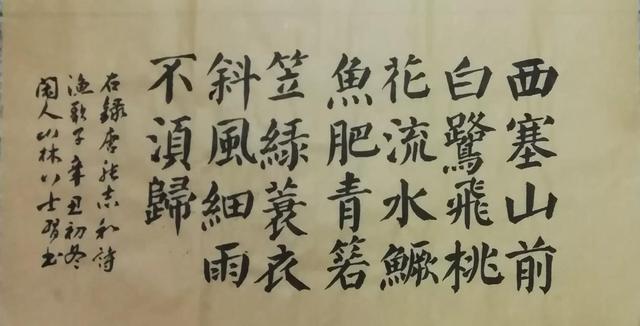 西塞山前
白鷺飛桃
花流水鱖
魚肥青箬
笠緑蓑衣
斜風細雨
不湏歸
右錄唐張志和詩
漁歌子辛丑初冬
閑人山林士習书